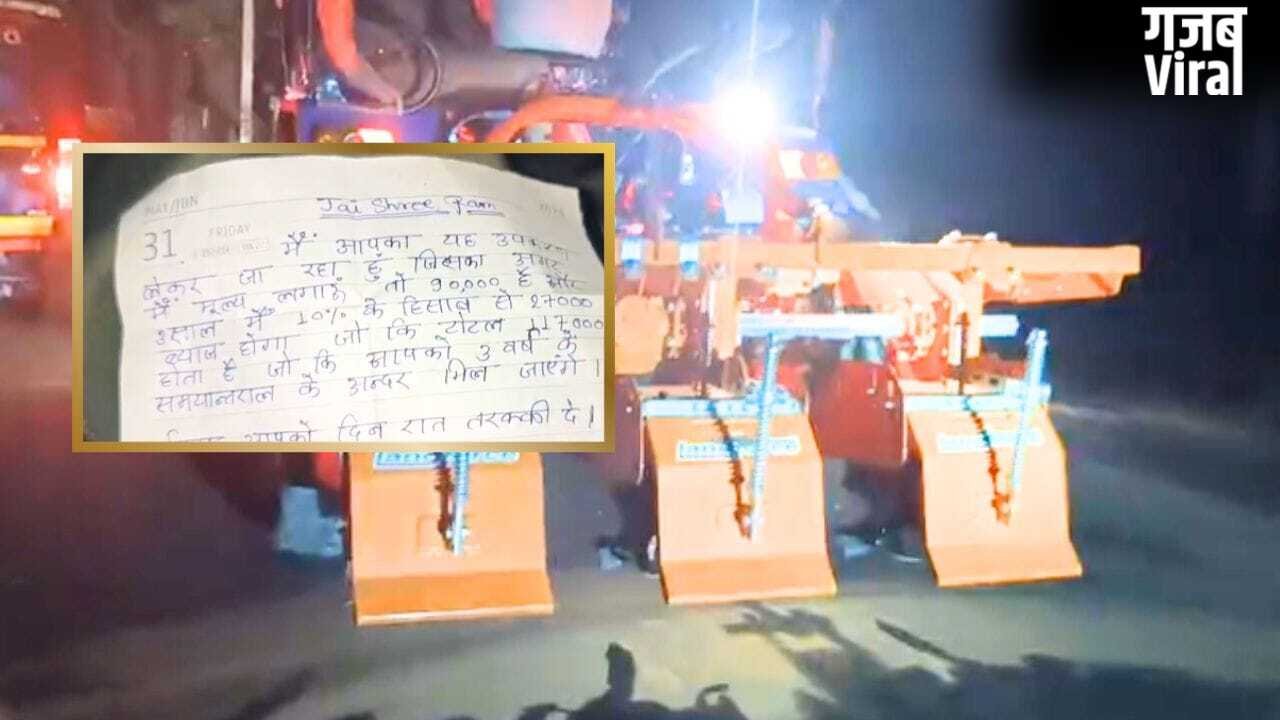 गजब
Viral
MAY/JUN
Jai Shree Ram
31
FRIDAY
मैं आपका यह
लेकर जा रहा हुँ जिसका अगर
मैं मूल्य लगाऊं तो 90,000 है और
3 साल में 10% के हिसाब से 27000
ब्याज होगा जो कि टोटल 117000
होता है जो कि आपको 3 वर्ष के
समयान्तराल के अन्दर मिल जाएंगे।
आपको दिन रात तरक्की दे।